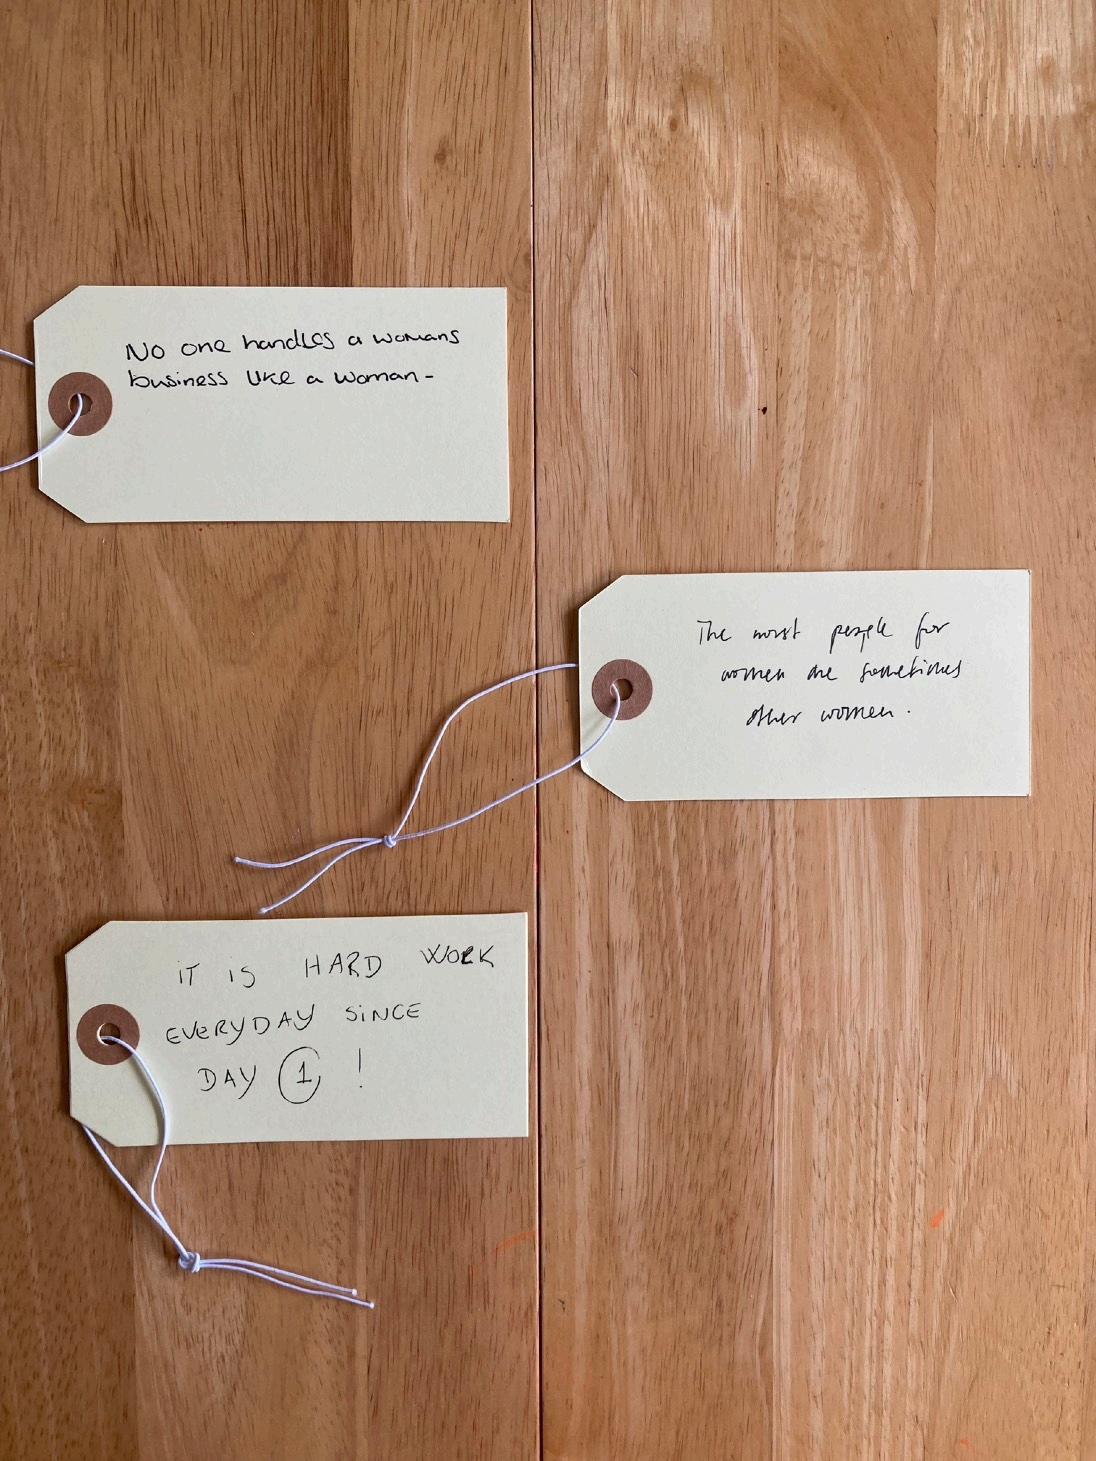 No one handles a womans
business like a woman-
The worst people for
women are sometimes
other women.
iT iS HARD WORK
EVERYDAY SiNCE
DAY 1 !